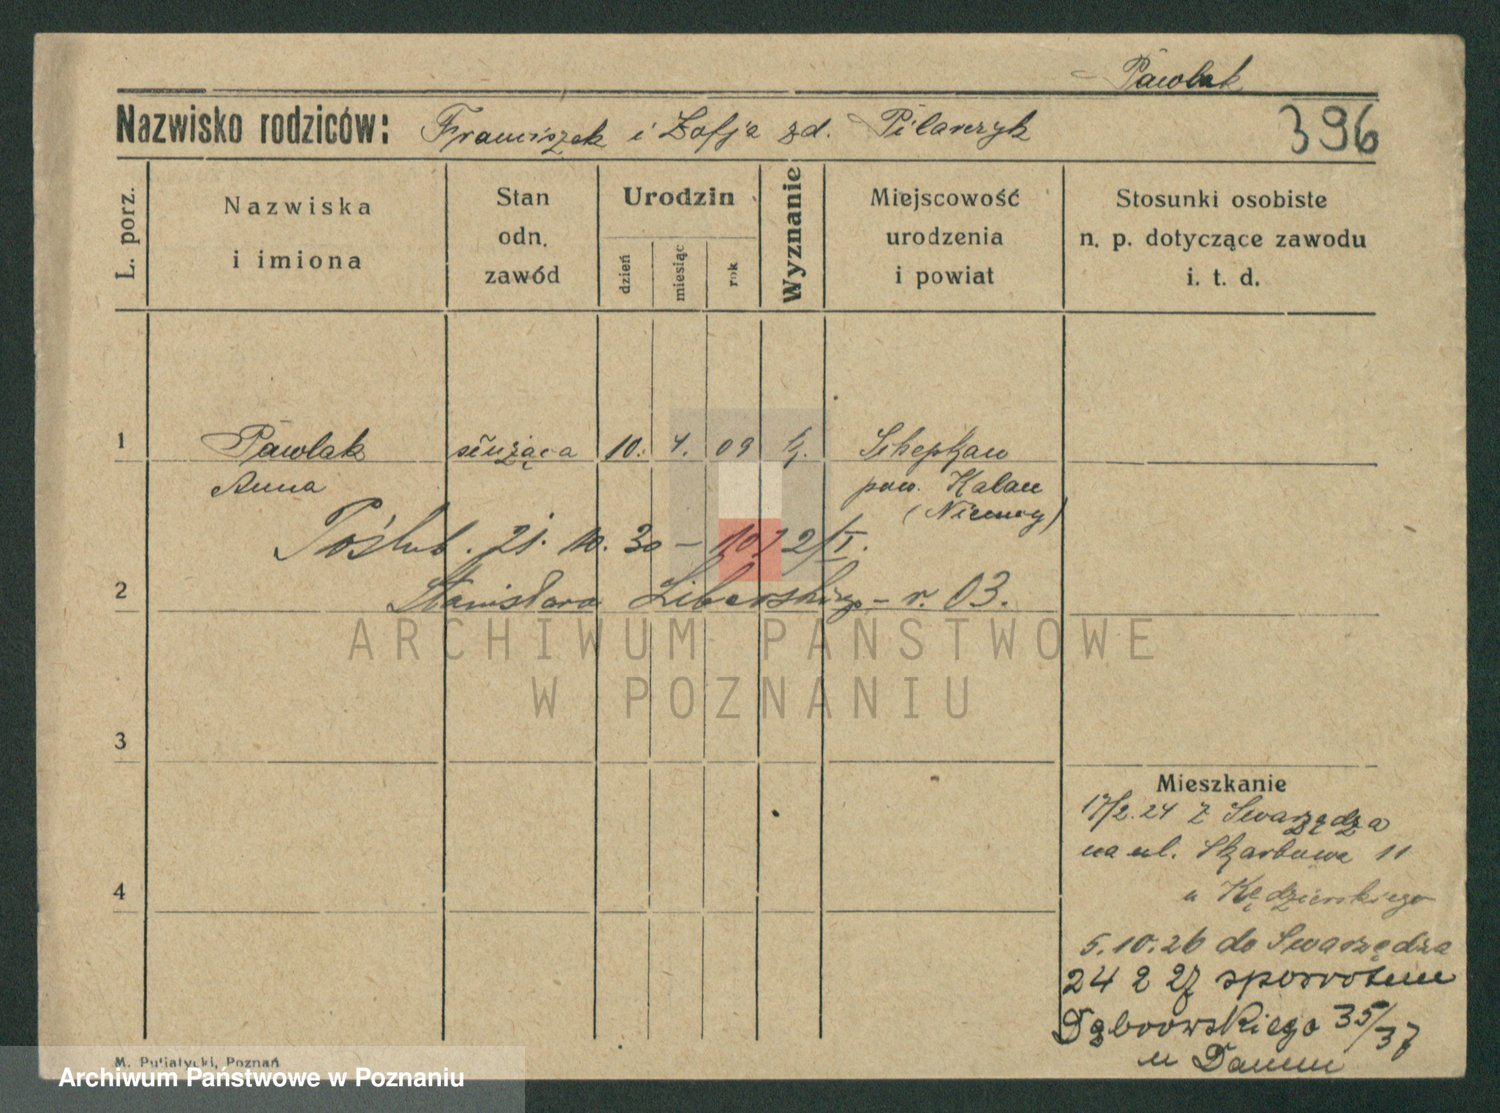 Pawlak
Nazwisko rodziców: Franciszek i Zofja zd. Pilarczyk
396
L. porz.
Nazwiska
i imiona
Stan
odn.
zawód
Urodzin
dzień
miesiąc
rok
Wyznanie
Miejscowość
urodzenia
i powiat
Stosunki osobiste
n. p. dotyczące zawodu
i. t. d.
1
Pawlak służąca 10. 4. 09 k.
Anna
pow. Kalau
(Niemcy)
Poślub. 21. 10. 30 –
2
Stanisława – r. 03.
ARCHIWUM PAŃSTWOWE
W POZNANIU
3
4
Mieszkanie
17/2. 24 z Swarzędza
na ul. Skarbowa 11
u Kędzierskiego
5. 10. 26 do Swarzędza
24 2 27 spowrotem
Dąbrowskiego 35/37
u
M. Putiatycki, Poznań
Archiwum Państwowe w Poznaniu